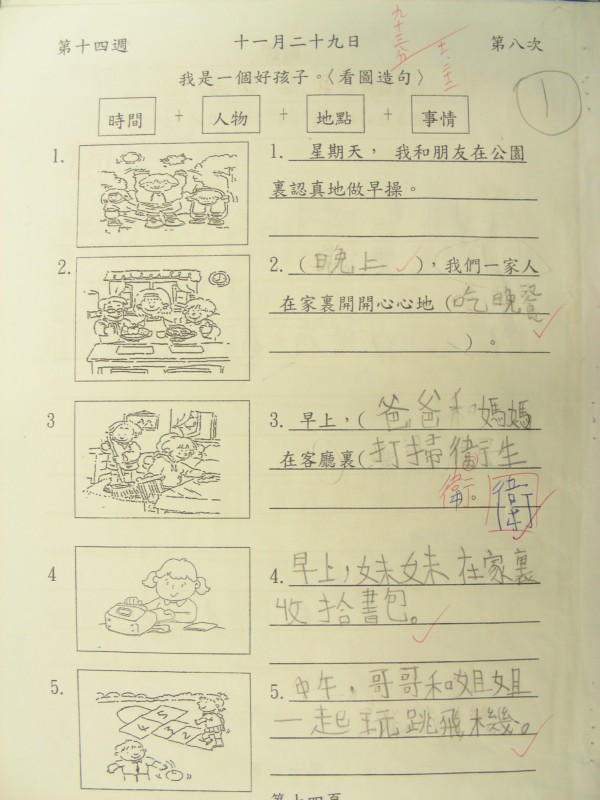 第十四週 十一月二十九日 第八次
九十三分
十二.二十二
我是一個好孩子。〈看圖造句〉
1
時間 + 人物 + 地點 + 事情
1. 1. 星期天，我和朋友在公園
裏認真地做早操。
2. 2. (晚上)，我們一家人
在家裏開開心心地(吃晚餐
)。
3 3. 早上，(爸爸和媽媽
在客廳裏(打掃衛生
衛 。 衛
4 4. 早上，妹妹在家裏
收拾書包。
5. 5. 中午，哥哥和姐姐
一起玩跳飛機。
第十四頁